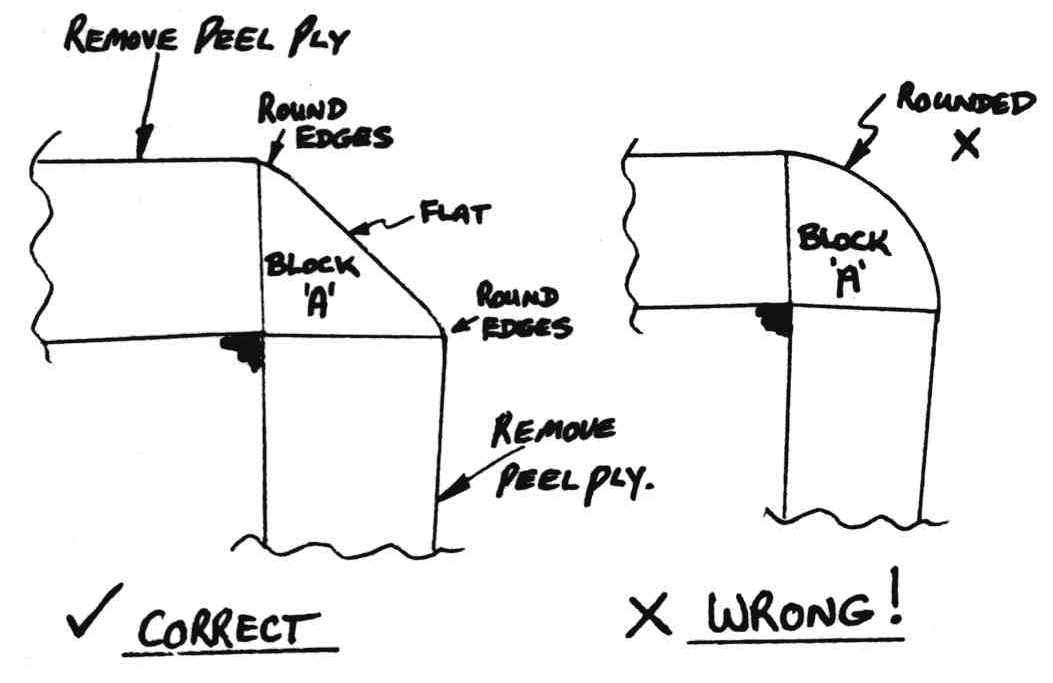 REMOVE PEEL PLY
ROUND
EDGES
FLAT
BLOCK
'A'
ROUND
EDGES
REMOVE
PEEL PLY.
✓ CORRECT
ROUNDED
X
BLOCK
'A'
X WRONG!